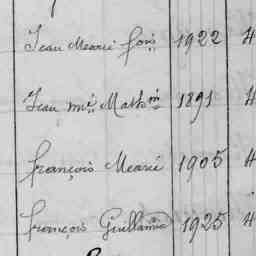 Jean Marie fois 1922 4
Jean Mie Mathin 1891 4
François Marie 1905 4
François Guillaume 1925 4